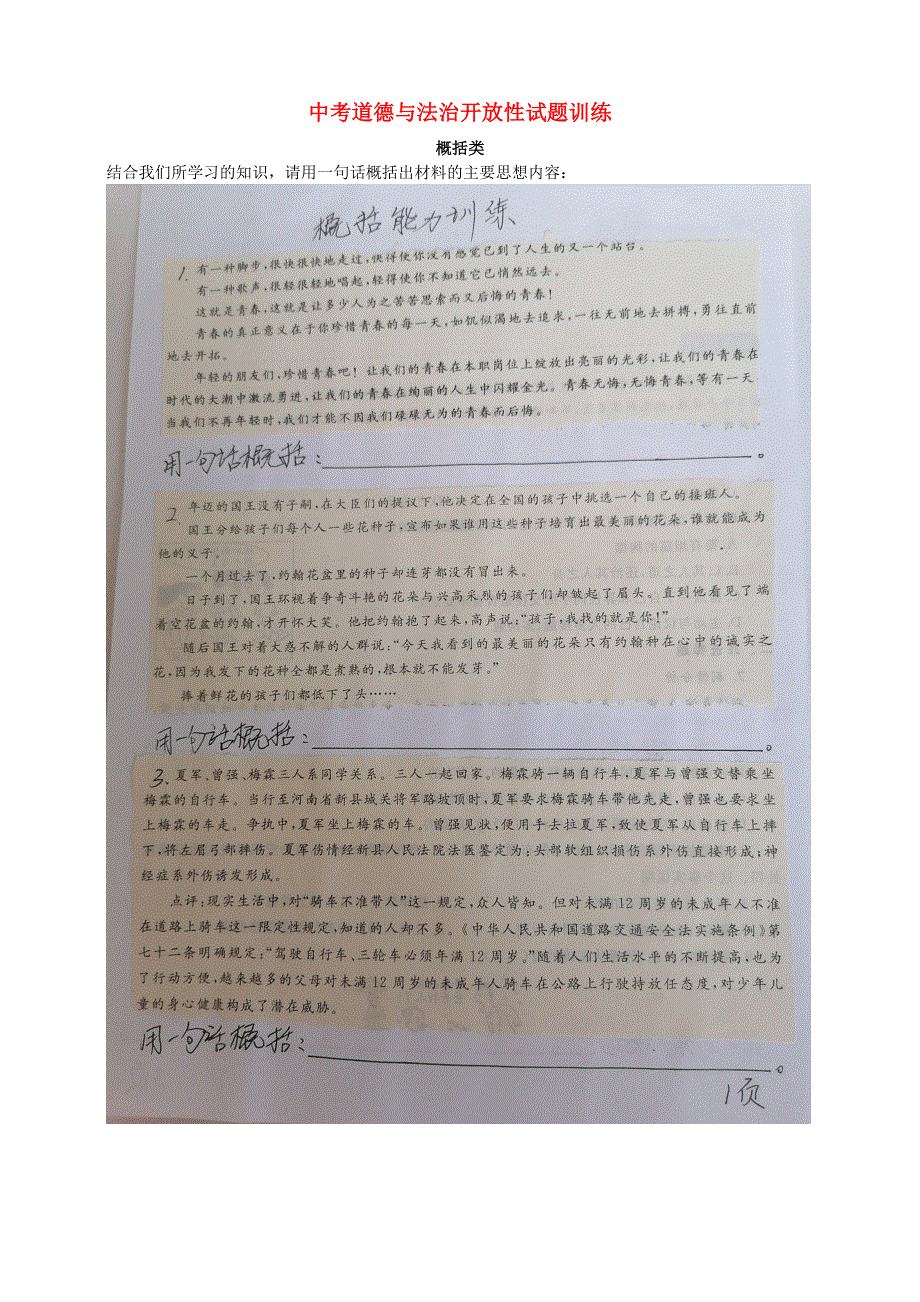 中考道德与法治开放性试题训练
概括类
结合我们所学习的知识，请用一句话概括出材料的主要思想内容：
概括能力训练
1. 有一种脚步，很快很快地走过，快得使你没有感觉已到了人生的又一个站台。
有一种歌声，很轻很轻地唱起，轻得使你不知道它已悄然远去。
这就是青春，这就是让多少人为之苦苦思索而又后悔的青春！
青春的真正意义在于你珍惜青春的每一天，如饥似渴地去追求，一往无前地去拼搏，勇往直前
地去开拓。
年轻的朋友们，珍惜青春吧！让我们的青春在本职岗位上绽放出亮丽的光彩，让我们的青春在
时代的大潮中激流勇进，让我们的青春在绚丽的人生中闪耀金光。青春无悔，无悔青春，等有一天
当我们不再年轻时，我们才能不因我们碌碌无为的青春而后悔。
用一句话概括：。
2. 年迈的国王没有子嗣，在大臣们的提议下，他决定在全国的孩子中挑选一个自己的接班人。
国王分给孩子们每个人一些花种子，宣布如果谁用这些种子培育出最美丽的花朵，谁就能成为
他的义子。
一个月过去了，约翰花盆里的种子却连芽都没有冒出来。
日子到了，国王环视着争奇斗艳的花朵与兴高采烈的孩子们却皱起了眉头。直到他看见了端
着空花盆的约翰，才开怀大笑。他把约翰抱了起来，高声说：“孩子，我找的就是你！”
随后国王对着大惑不解的人群说：“今天我看到的最美丽的花朵只有约翰种在心中的诚实之
花，因为我发下的花种全都是煮熟的，根本就不能发芽。”
捧着鲜花的孩子们都低下了头……
用一句话概括：。
3. 夏军、曾强、梅霖三人系同学关系。三人一起回家。梅霖骑一辆自行车，夏军与曾强交替乘坐
梅霖的自行车。当行至河南省新县城关将军路坡顶时，夏军要求梅霖骑车带他先走，曾强也要求坐
上梅霖的车走。争执中，夏军坐上梅霖的车。曾强见状，便用手去拉夏军，致使夏军从自行车上摔
下，将左眉弓部摔伤。夏军伤情经新县人民法院法医鉴定为：头部软组织损伤系外伤直接形成；神
经症系外伤诱发形成。
点评：现实生活中，对“骑车不准带人”这一规定，众人皆知。但对未满12周岁的未成年人不准
在道路上骑车这一限定性规定，知道的人却不多。《中华人民共和国道路交通安全法实施条例》第
七十二条明确规定：“驾驶自行车、三轮车必须年满12周岁。”随着人们生活水平的不断提高，也为
了行动方便，越来越多的父母对未满12周岁的未成年人骑车在公路上行驶持放任态度，对少年儿
童的身心健康构成了潜在威胁。
用一句话概括：。
1页